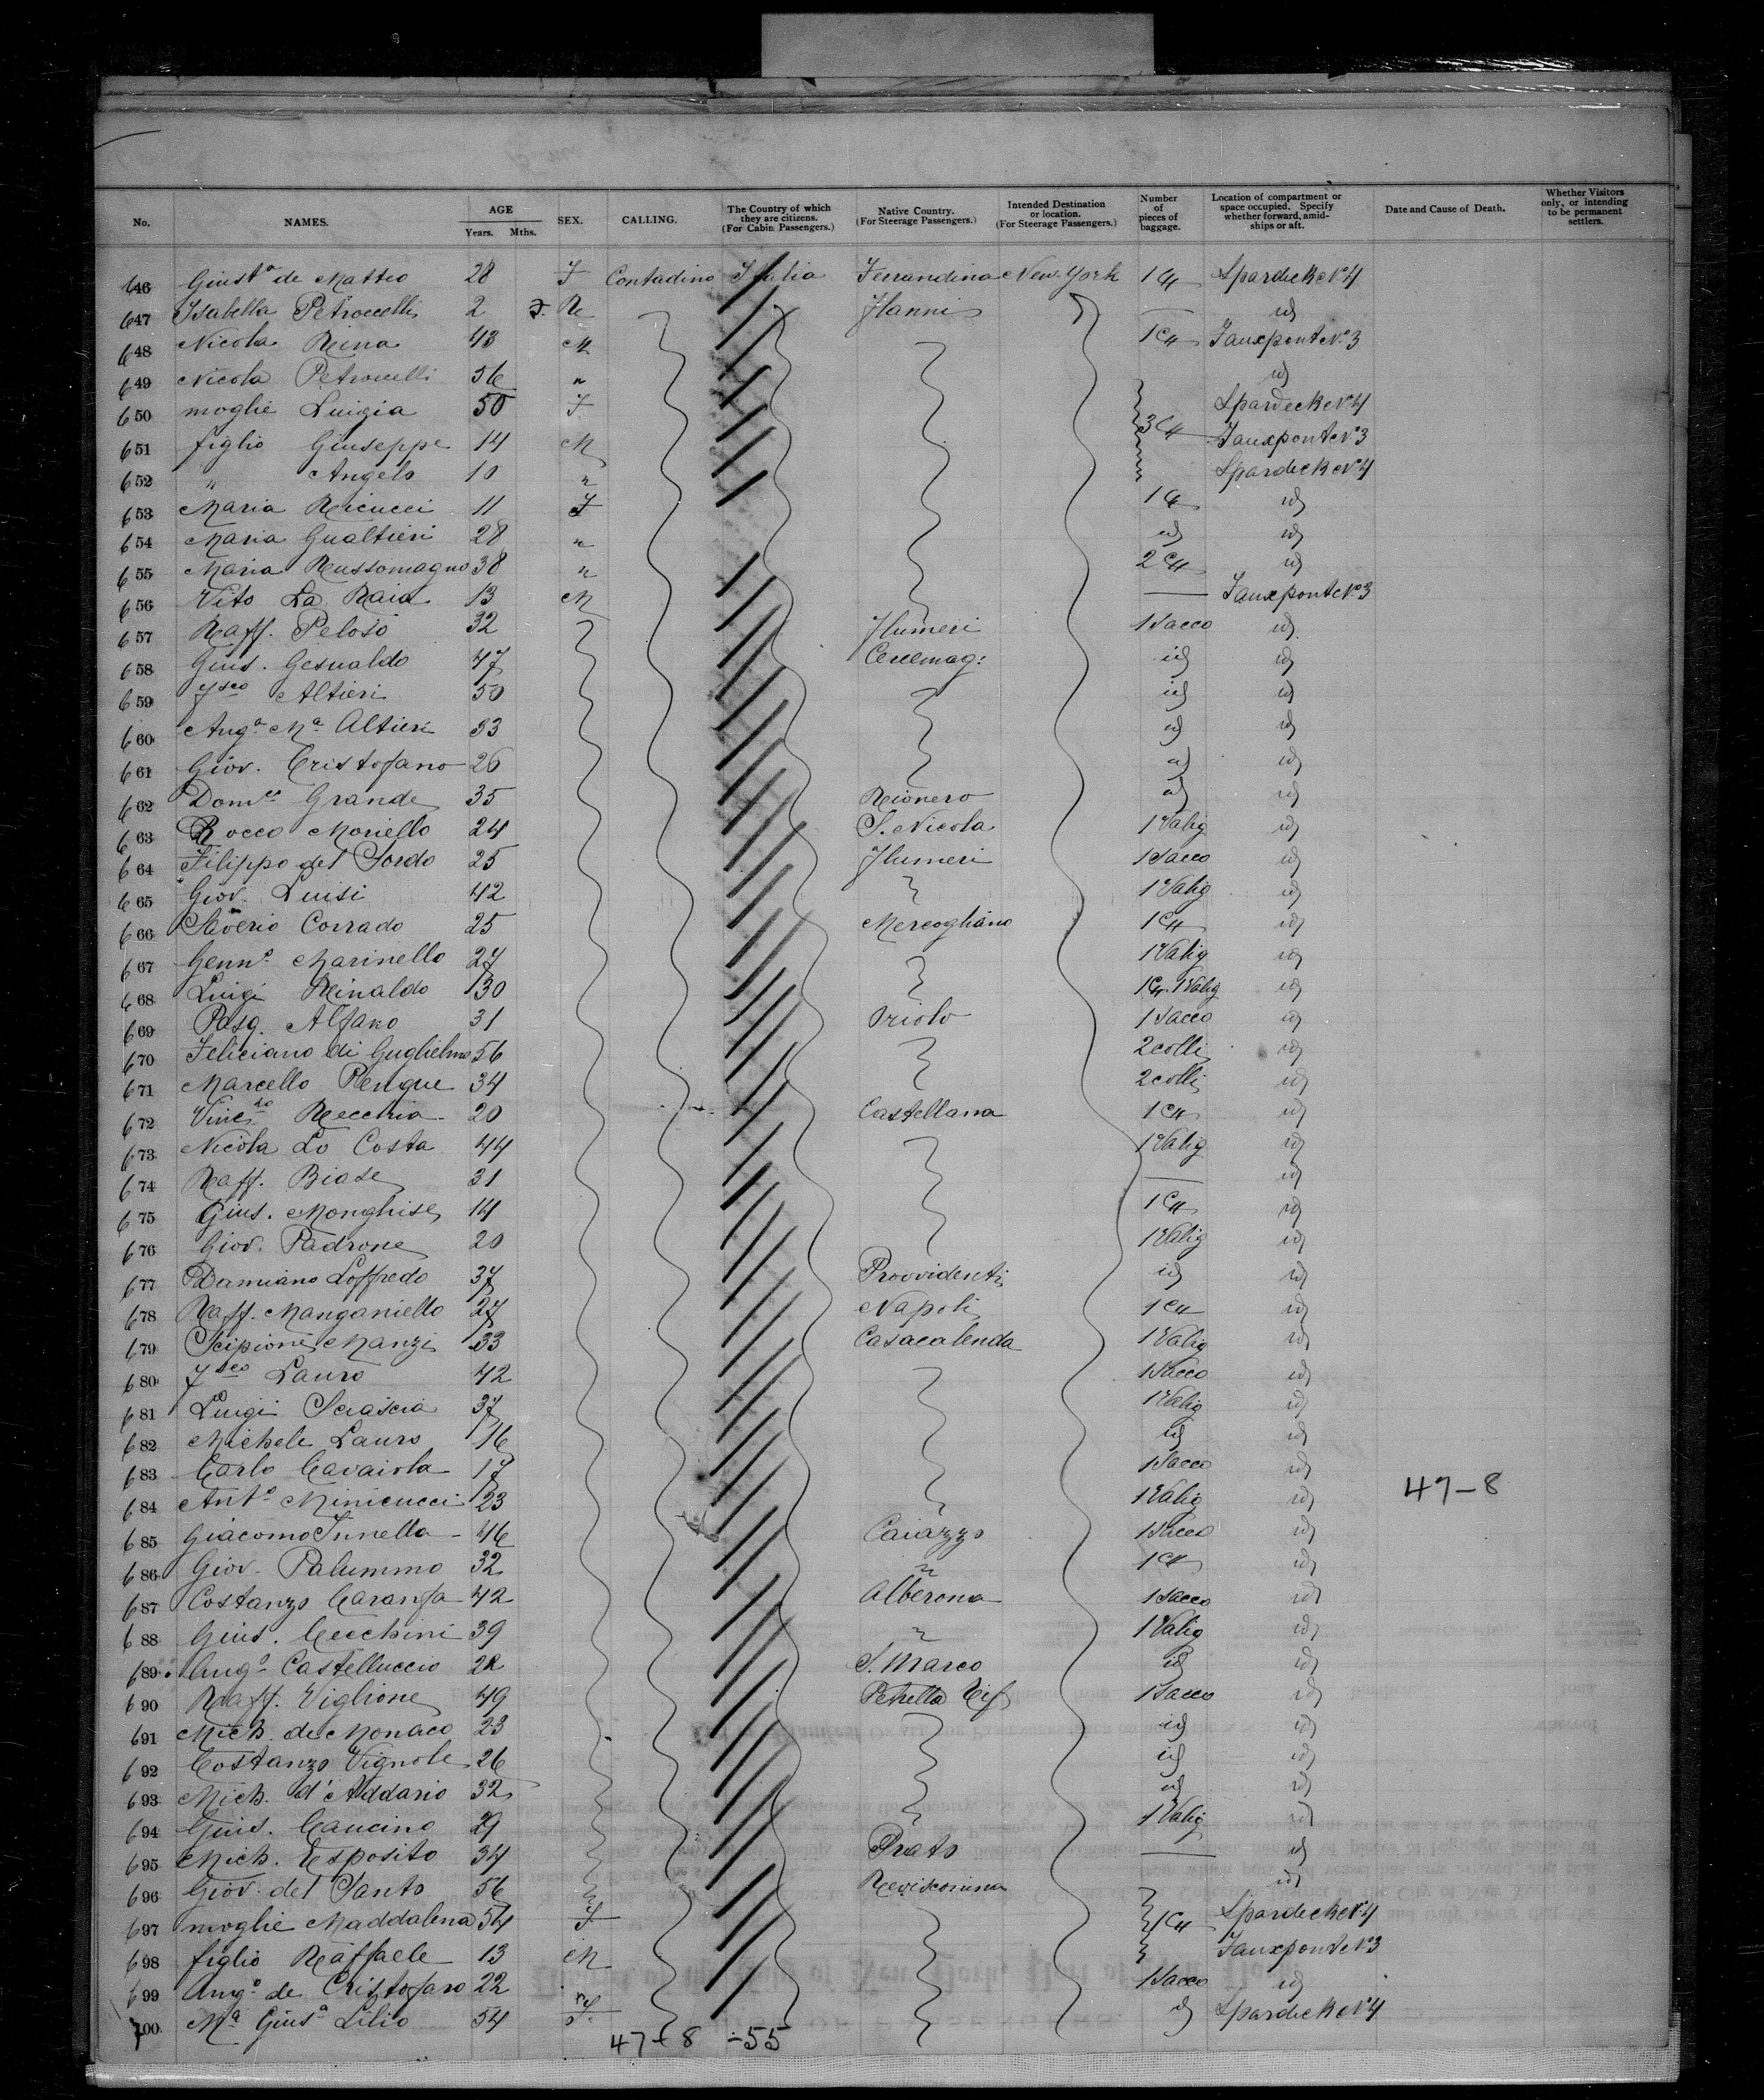 No. NAMES. AGE Years. Mths. SEX. CALLING. The Country of which they are citizens. (For Cabin Passengers.) Native Country. (For Steerage Passengers.) Intended Destination or location. (For Steerage Passengers.) Number of pieces of baggage. Location of compartment or space occupied. Specify whether forward, amidships or aft. Date and Cause of Death. Whether Visitors only, or intending to be permanent settlers.
646 Giust.a de Matteo 28 F Contadino Italia Ferrandina New-York 1 Spardeck No 4
647 Isabella Petrocelli 2 F id
648 Nicola Reina 43 M Fauxpont No 3
649 Nicola Petrocelli 56 " id
650 moglie Luigia 50 F Spardeck No 4
651 figlio Giuseppe 14 M 3 Fauxpont No 3
652 " Angelo 10 " Spardeck No 4
653 Maria Ricucci 11 F 1 id
654 Maria Gualtieri 28 " id id
655 Maria Russomagno 38 " 2 id
656 Vito La Raia 13 M — Fauxpont No 3
657 Raff. Peloso 32 Flumeri 1 Sacco id
658 Gius. Gesualdo 47 Cercemag: id id
659 Fsco Altieri 50 id id
660 Ang.a M.a Altieri id id
661 Giov. Cristofano 26 id id
662 Dom.co Grande 35 Rionero id id
663 Rocco Moriello 24 S. Nicola 1 Valig id
664 Filippo del Sordo 25 Flumeri 1 Sacco id
665 Giov. Luisi 42 1 Valig id
666 Saverio Corrado 25 Mercogliano 1 id
667 Genn.o Marinello 27 1 Valig id
668 Luigi Rinaldo 30 1 Valig id
669 Pasq. Alfano 31 Oriolo 1 Sacco id
670 Feliciano di Guglielmo 56 2 colli id
671 Marcello Pengue 34 2 colli id
672 Vinc.zo Recchia 20 Castellana 1 id
673 Nicola Lo Costa 44 1 Valig id
674 Raff. Biase 31 — id
675 Gius. Monghise 14 1 id
676 Giov. Padrone 20 1 Valig id
677 Damiano Loffredo 37 Provvidenti id id
678 Raff. Manganiello 27 Napoli 1 id
679 Scipione Manzi 33 Casacalenda 1 Valig id
680 Fsco Lauro 42 1 Sacco id
681 Luigi Sciascia 37 1 Valig id
682 Michele Lauro 16 id id
683 Carlo Cavaiola 17 1 Sacco id
684 Ant.o Minicucci 23 1 Valig id 47-8
685 Giacomo Innella 46 Caiazzo 1 Sacco id
686 Giov. Palummo 32 " 1 id
687 Costanzo Caranfa 42 Alberona 1 Sacco id
688 Gius. Cecchini 39 " 1 Valig id
689 Ang.o Castelluccio S. Marco id id
690 Raff. Viglione 49 Petrella Tif 1 Sacco id
691 Mich. de Monaco 23 id id
692 Costanzo Vignole 26 id id
693 Mich. d'Addario 32 id id
694 Gius. Caucino 29 1 Valig id
695 Mich. Esposito 34 Prato — id
696 Giov. del Santo 56 id
697 moglie Maddalena 54 F Spardeck No 4
698 figlio Raffaele 13 M Fauxpont No 3
699 Ang.o de Cristofaro 22 1 Sacco id
700 M.a Gius.a Lilio 54 F id Spardeck No 4
47-8 -55